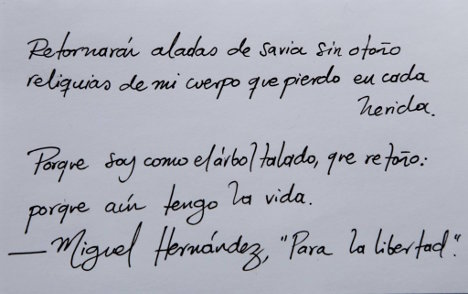 Retoñarán aladas de savia sin otoño
reliquias de mi cuerpo que pierdo en cada
herida.
Porque soy como el árbol talado, que retoño:
porque aún tengo la vida.
— Miguel Hernández, "Para la libertad".